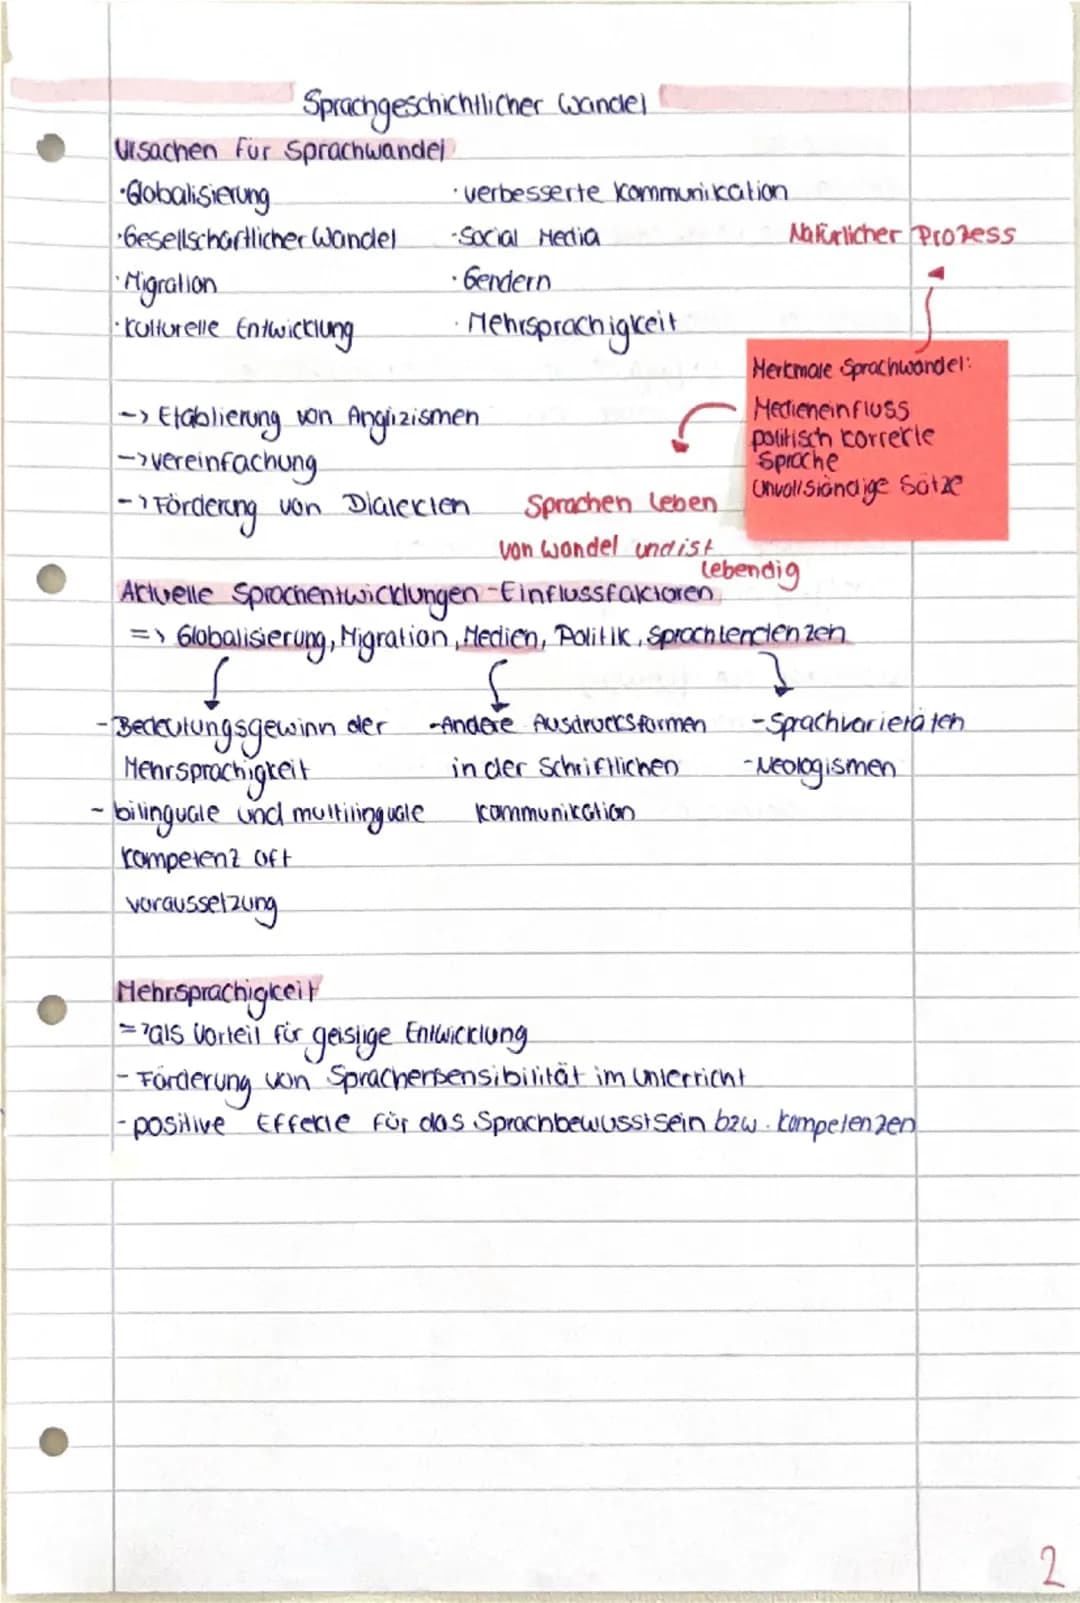 Sprachgeschichtlicher Wandel
Ursachen für Sprachwandel
·Globalisierung
·verbesserte Kommunikation
·Gesellschaftlicher Wandel
·Social Media
Natürlicher Prozess
·Migration
·Gendern
·Kulturelle Entwicklung
·Mehrsprachigkeit
Merkmale Sprachwandel:
Medieneinfluss
politisch korrekte
Sprache
Unvollständige Sätze
-> Etablierung von Anglizismen
-> vereinfachung
-> Förderung von Dialekten
Sprachen leben
von Wandel und ist
lebendig
Aktuelle Sprachentwicklungen - Einflussfaktoren
=> Globalisierung, Migration, Medien, Politik, Sprachtendenzen
- Bedeutungsgewinn der
Mehrsprachigkeit
- bilinguale und multilinguale
Kompetenz oft
voraussetzung
-Andere Ausdrucksformen
in der Schriftlichen
Kommunikation
- Sprachvarietäten
- Neologismen
Mehrsprachigkeit
=> als Vorteil für geistige Entwicklung
- Förderung von Sprachensensibilität im Unterricht
- positive Effekte für das Sprachbewusstsein bzw. Kompetenzen
2